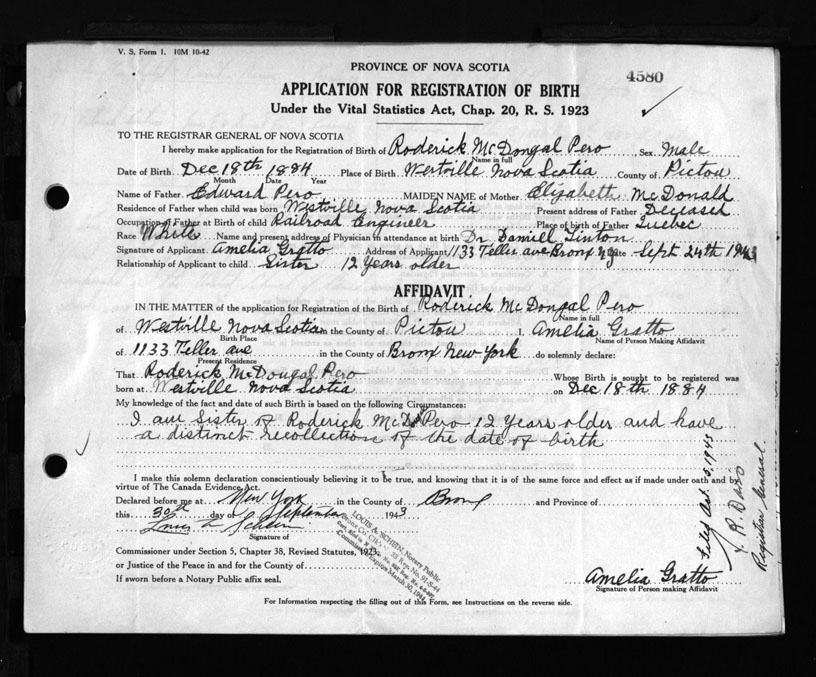 V. S. Form 1. 10M 10-42
PROVINCE OF NOVA SCOTIA
4580
APPLICATION FOR REGISTRATION OF BIRTH
Under the Vital Statistics Act, Chap. 20, R. S. 1923
TO THE REGISTRAR GENERAL OF NOVA SCOTIA
I hereby make application for the Registration of Birth of Roderick McDongal Pero Sex Male
Name in full
Date of Birth Dec 18th 1884 Place of Birth Westville Nova Scotia County of Pictou
Month Date Year
Name of Father Edward Pero MAIDEN NAME of Mother Elizabeth McDonald
Residence of Father when child was born Westville Nova Scotia Present address of Father Deceased
Occupation of Father at Birth of child Railroad Engineer Place of birth of Father Quebec
Race White Name and present address of Physician in attendance at birth Dr Daniell
Signature of Applicant Amelia Gratto Address of Applicant 1133 Teller ave Bronx NY Date Sept. 24th 1943
Relationship of Applicant to child Sister 12 Years older
AFFIDAVIT
IN THE MATTER of the application for Registration of the Birth of Roderick McDongal Pero
Name in full
of Westville Nova Scotia in the County of Pictou I, Amelia Gratto
Birth Place Name of Person Making Affidavit
of 1133 Teller ave in the County of Bronx New York do solemnly declare:
Present Residence
That Roderick McDougal Pero Whose Birth is sought to be registered was
born at Westville Nova Scotia on Dec 18th 1884
My knowledge of the fact and date of such Birth is based on the following Circumstances:
I am Sister of Roderick McD Pero 12 years older and have
a distinct recollection of the date of birth
I make this solemn declaration conscientiously believing it to be true, and knowing that it is of the same force and effect as if made under oath and by
virtue of The Canada Evidence Act.
Declared before me at New York in the County of Bronx and Province of
this 30th day of September 1943
Louis A Schein
Signature of
Commissioner under Section 5, Chapter 38, Revised Statutes, 1923
or Justice of the Peace in and for the County of
If sworn before a Notary Public affix seal.
LOUIS A. SCHEIN, Notary Public
Bronx Co. Clk's No. 33 Reg. No. 91-S-44
Commission Expires March 30, 1944
Amelia Gratto
Signature of Person Making Affidavit
Filed Oct. 5, 1943
Registrar General.
For Information respecting the filling out of this Form, see Instructions on the reverse side.